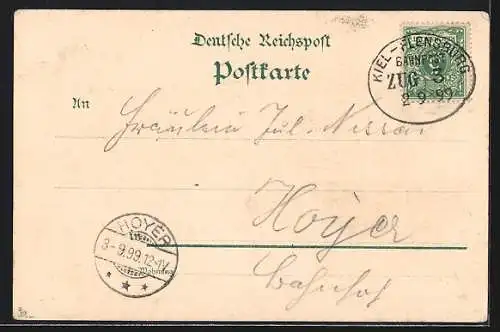 Deutsche Reichspost
Postkarte
KIEL-FLENSBURG
BAHNPOST
ZUG 3
2 9 99
An
Fräulein Jul. Nissen
Hoyer
HOYER
3-9.99.12-1V.
Wohnung
Bahnhof